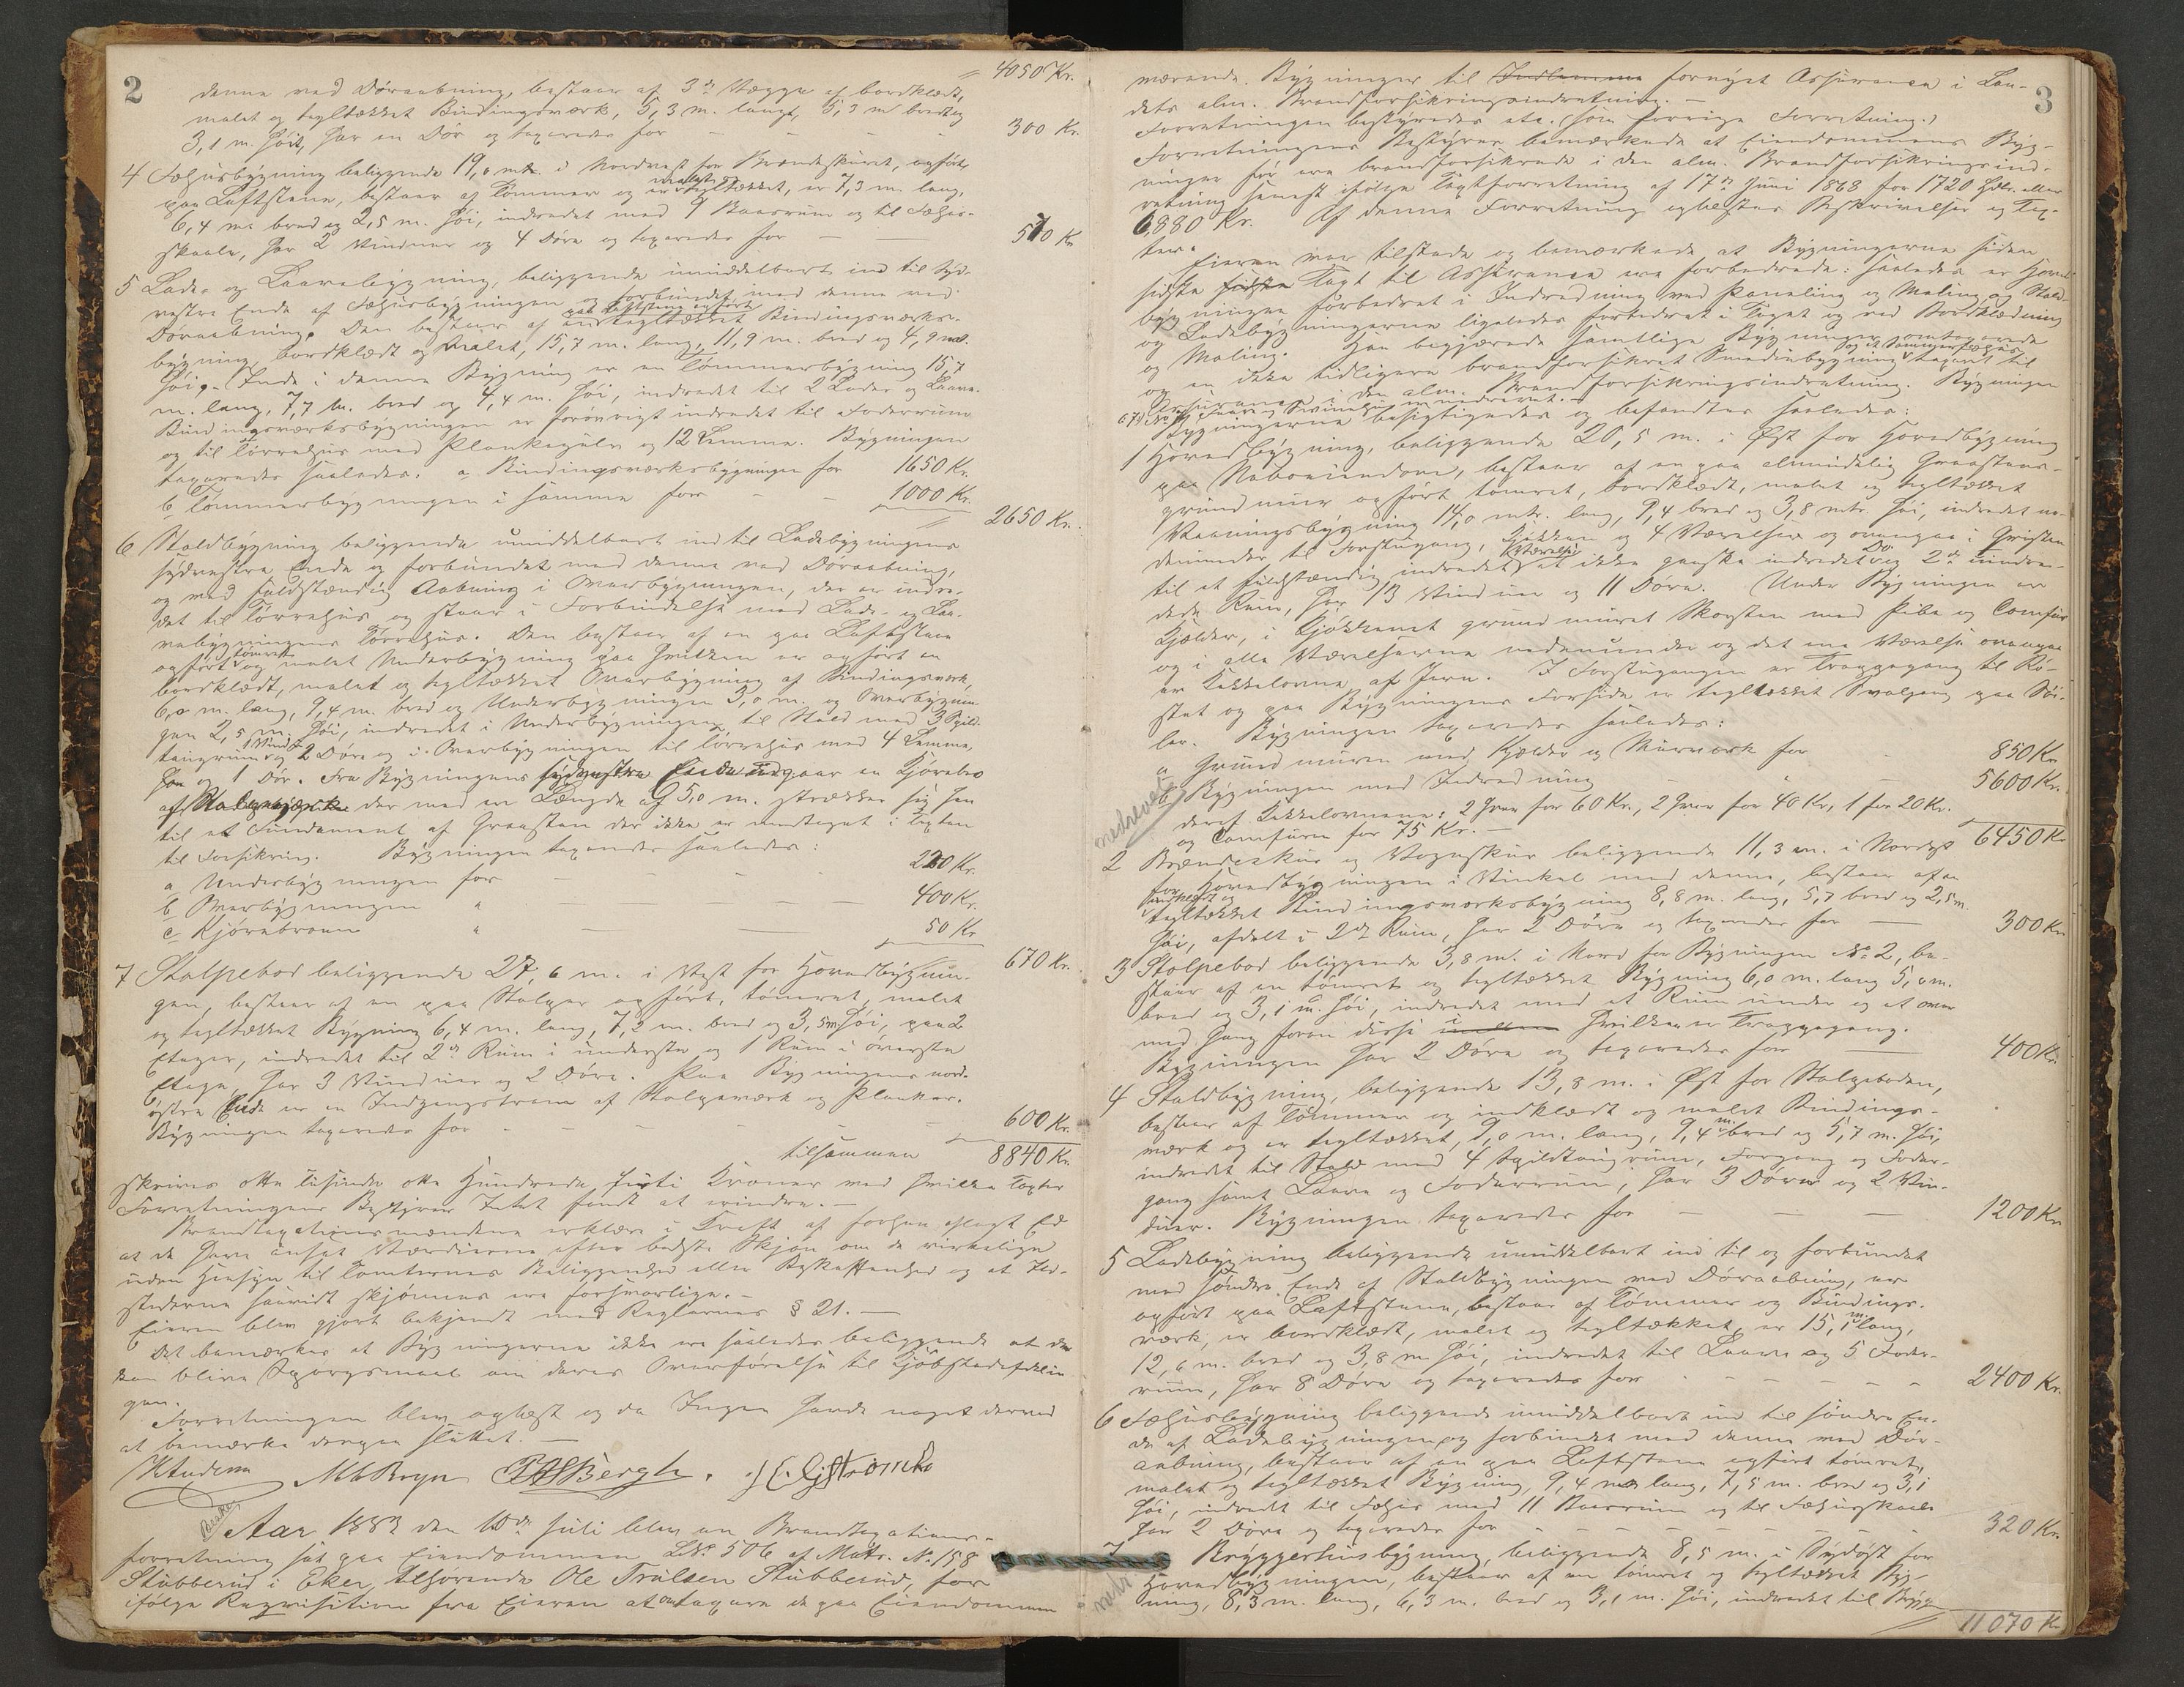 2
4050 Kr.
denne ved Døraabning, bestaar af 3de Vægge af bordklædt,
malet og tegltækket Bindingsværk, 5,3 m. langt, 5,3 m bredt og
3,1 m. høit, har en Dør og taxeredes for - - - 300 Kr.
4 Fæhusbygning beliggende 19,0 mtr. i Nordvest for Brændeskuret, opført
paa Luftstene, bestaar af Tømmer og er malet og tegltækket, er 7,3 m. lang,
6,4 m. bred og 2,5 m. høi, indredet med 9 Baasrum og til Fæhus-
skaale, har 2 Vinduer og 4 Døre og taxeredes for — 570 Kr
5 Lade- og Laavebygning, beliggende umiddelbart ind til Syd-
vestre Ende af Fæhusbygningen og forbundet med denne ved
Døraabning. Den bestaar af en paa Luftstene opført tegltækket Bindingsværks-
bygning, bordklædt og malet, 15,7 m. lang, 11,9 m. bred og 4,9 m.
høi. Inde i denne Bygning er en Tømmerbygning 15,7
m. lang, 7,7 m. bred og 4,4 m. høi, indredet til 2 Lader og Laave.
Bindingsværksbygningen er forøvrigt indredet til Foderrum
og til Tørrehus med Plankegulv og 12 Lemme. Bygningen
taxeredes saaledes: a, Bindingsværksbygningen for 1650 Kr.
b, Tømmerbygningen i samme for - - 1000 Kr.
2650 Kr.
6 Staldbygning beliggende umiddelbart ind til Ladebygningens
sydvestre Ende og forbundet med denne ved Døraabning,
og med fuldstændig Aabning i Overbygningen, der er indre-
det til Tørrehus og staar i Forbindelse med Lade- og Laa-
vebygningens Tørrehus. Den bestaar af en paa Luftstene
opført tømret og malet Underbygning paa hvilken er opført en
bordklædt, malet og tegltækket Overbygning af Bindingsværk,
6,0 m. lang, 9,4 m. bred og Underbygningen 3,0 m. og Overbygnin-
gen 2,5 m. høi, indredet i Underbygningen til Stald med 3 Spil-
taugrum, 1 Vindu og 2 Døre og i Overbygningen til Tørrehus med 4 Lemme,
har og 1 Dør. Fra Bygningens sydvestre Ende udgaar en Kjørebro
af Stolpeværk der med en Længde af 5,0 m. strækker sig hen
til et Fundament af Graasten der ikke er medtaget i Taxten
til Forsikring. Bygningen taxeredes saaledes:
a, Underbygningen for - - - 220 Kr.
b, Overbygningen " — — — 400 Kr.
c, Kjørebroen " — — 50 Kr
670 Kr.
7 Stolpebod beliggende 27,6 m. i Vest for Hovedbygnin-
gen, bestaar af en paa Stolper opført, tømret, malet
og tegltækket Bygning 6,4 m. lang, 7,2 m. bred og 3,5 m høi, paa 2
Etager, indredet til 2de Rum i underste og 1 Rum i øverste
Etage, har 3 Vinduer og 2 Døre. Paa Bygningens nord-
østre Ende er en Indgangstrave af Stolpeværk og Planker.
Bygningen taxeredes for - - - - 600 Kr.
tilsammen 8840 Kr.
skriver otte tusinde otte Hundrede firti Kroner med hvilken Taxter
Forretningens Bestyrer Intet fandt at erindre. —
Brandtaxationsmændene erklære i Kraft af forhen aflagt Ed
at de have ansat Værdierne efter bedste Skjøn om de virkelige
uden Hensyn til Tomternes Beliggenhed eller Beskaffenhed og at Ild-
stederne saavidt skjønnes ere forsvarlige. —
Eieren blev gjort bekjendt med Reglernes § 21. —
Det bemærkes at Bygningerne ikke ere saaledes beliggende at der
kan blive Spørgsmaal om deres Overførelse til Kjøbstadafdelin-
gen.
Forretningen blev oplæst og da Ingen havde noget derved
at bemærke dermed sluttet. —
KAudem M Bryn PA Bergh. J E Gjstrømck
Aar 1883 den 10de Juli blev en Brandtaxations-
forretning sat paa Eiendommen LNo 506 af Matr. No 158
Stubberud i Eker, tilhørende Ole Trulsen Stubberud, for
ifølge Reqvisition fra Eieren at omtaxere de paa Eiendommen
3
værende Bygninger til Indlemme fornyet Assurance i Lan-
dets alm. Brandforsikringsindretning. —
Forretningen bestyredes etc. (som forrige Forretning.)
Forretningens Bestyrer bemærkede at Eiendommens Byg-
ninger før ere brandforsikrede i den alm. Brandforsikringsind-
retning senest ifølge Taxtforretning af 17de Juni 1868 for 1720 Spdlr. eller
6880 Kr. Af denne Forretning oplæstes Beskrivelser og Tax-
ter.
Eieren var tilstede og bemærkede at Bygningerne siden
sidste Taxt til Assurance ere forbedrede: saaledes er Hoved-
bygningen forbedret i Indredning ved Paneling og Maling og Stald-
og Ladebygningerne ligeledes forbedret i Taget og ved Bordklædning
og Maling. Han begjærede samtlige Bygninger omtaxerede
og en ikke tidligere brandforsikret Smediebygning og et Sommerfæhus taxeret til
Assurance i den alm. Brandforsikringsindretning. Bygningen
Bygningerne besigtigedes og befandtes saaledes:
1 Hovedbygning, beliggende 20,5 m. i Øst for Hovedbygning
paa Naboeiendom, bestaar af en paa almindelig Graastens-
grundmur opført tømret, bordklædt, malet og tegltækket
Vaaningsbygning 14,0 mtr. lang, 9,4 bred og 3,8 mtr. høi, indredet ne-
denunder til Forstugang, Kjøkken og 4 Værelser og ovenpaa i Gavlen
til et fuldstændig indredet Værelse, et ikke ganske indredet Do og 2de uindre-
dede Rum, har 13 Vinduer og 11 Døre. Under Bygningen er
Kjelder, i Kjøkkenet grundmuret Skorsten med Pibe og Comfur
og i alle Værelserne nedenunder og det ene Værelse ovenpaa
er Kakkelovne af Jern. I Forstugangen er Trappegang til Lo-
ftet og paa Bygningens Forside er tegltækket Svalgang paa Søi-
ler. Bygningen taxeredes saaledes:
a, Grundmuren med Kjelder og Murværk for - 850 Kr.
b, Bygningen med Indredning - - - 5600 Kr.
deraf Kakkelovnene: 2 Hver for 60 Kr., 2 Hver for 40 Kr, 1 for 20 Kr.
og Comfuren for 75 Kr. —
6450 Kr
nedrevet
2 Brændeskur og Vognskur beliggende 11,3 m. i Nordøst
for Hovedbygningen i Vinkel med denne, bestaar af en
tegltækket Bindingsværksbygning 8,8 m. lang, 5,7 bred og 2,5 m.
høi, afdelt i 2de Rum, har 2 Døre og taxeredes for — 300 Kr
3 Stolpebod beliggende 3,8 m. i Nord for Bygningen No 2, be-
staar af en tømret og tegltækket Bygning 6,0 m. lang 5,0 m.
bred og 3,1 m. høi, indredet med et Rum under og et over
med Gang foran disse i hvilken er Trappegang.
Bygningen har 2 Døre og taxeredes for — 400 Kr.
4 Staldbygning, beliggende 13,8 m. i Øst for Stolpeboden,
bestaar af Tømmer og indklædt og malet Bindings-
værk og er tegltækket, 9,0 m. lang, 9,4 m. bred og 5,7 m. høi,
indredet til Stald med 4 Spiltaugrum, Forgang og Foder-
gang samt Laave og Foderrum, har 3 Døre og 2 Vin-
duer. Bygningen taxeredes for - - - 1200 Kr
5 Ladebygning beliggende umiddelbart ind til og forbundet
med søndre Ende af Staldbygningen ved Døraabning, er
opført paa Luftstene, bestaar af Tømmer og Bindings-
værk, er bordklædt, malet og tegltækket, er 15,1 m. lang,
12,6 m. bred og 3,8 m høi, indredet til Laave og 5 Foder-
rum, har 8 Døre og taxeredes for - - - - - 2400 Kr.
6 Fæhusbygning beliggende umiddelbart ind til søndre En-
de af Ladebygningen og forbundet med denne ved Dør-
aabning, bestaar af en paa Luftstene opført tømret,
malet og tegltækket Bygning, 9,4 m lang, 7,5 m. bred og 3,1
høi, indredet til Fæhus med 11 Baasrum og til Fæhusskaale
har 2 Døre og taxeredes for - - - - - 320 Kr.
7 Bryggerhusbygning, beliggende 8,5 m. i Sydøst for
Hovedbygningen, bestaar af en tømret og tegltækket Byg-
ning, 8,3 m. lang, 6,3 m. bred og 3,1 m. høi, indredet til Bryg-
11070 Kr.